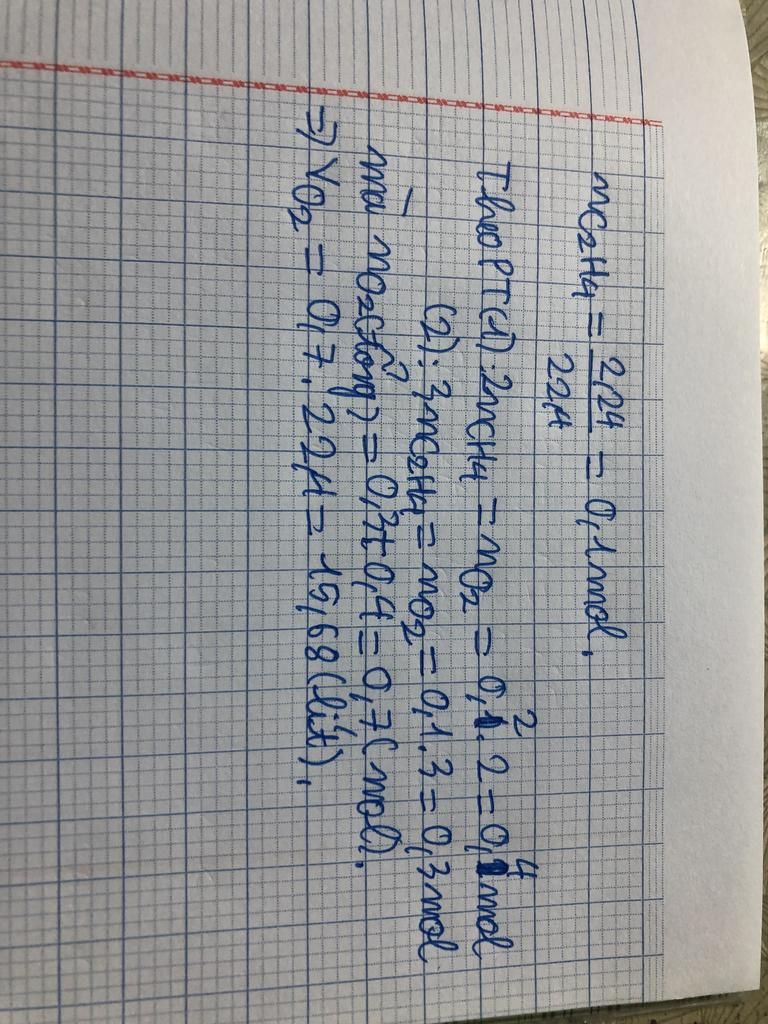 nC₂H₄ = 2,24 / 22,4 = 0,1 mol.
Theo PT(1): 2nCH₄ = nO₂ = 0,2 . 2 = 0,4 mol
(2): 3nC₂H₄ = nO₂ = 0,1 . 3 = 0,3 mol
mà nO₂(tổng) = 0,3 + 0,4 = 0,7 (mol).
=> VO₂ = 0,7 . 22,4 = 15,68 (lít).